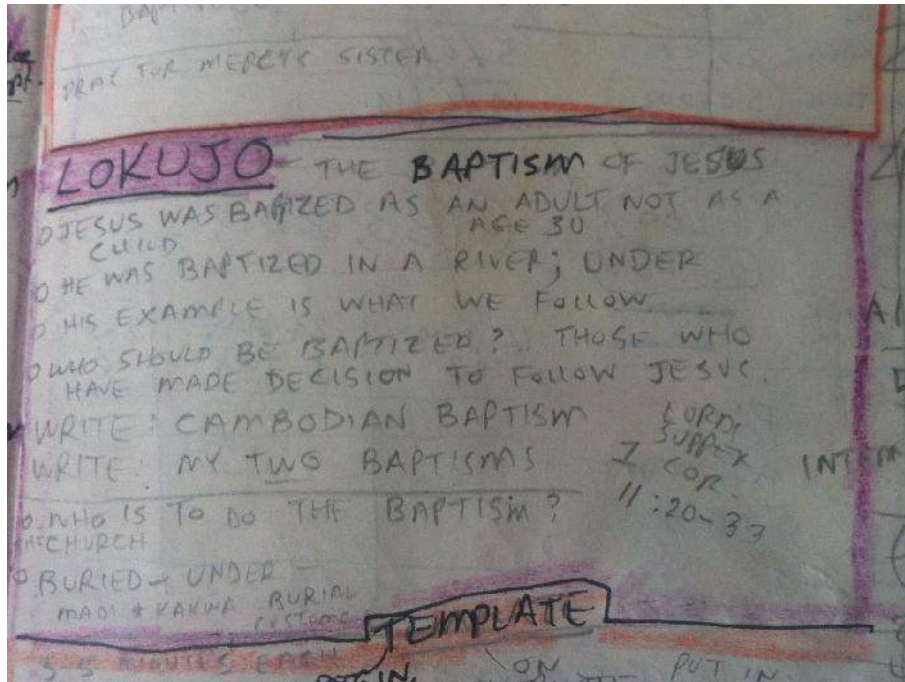 PRAY FOR MERCY'S SISTER
LOKUJO - THE BAPTISM OF JESUS
O JESUS WAS BAPTIZED AS AN ADULT NOT AS A
CHILD AGE 30
O HE WAS BAPTIZED IN A RIVER; UNDER
O HIS EXAMPLE IS WHAT WE FOLLOW
O WHO SHOULD BE BAPTIZED? THOSE WHO
HAVE MADE DECISION TO FOLLOW JESUS.
WRITE: CAMBODIAN BAPTISM
WRITE: MY TWO BAPTISMS
LORDS
SUPPER
I COR.
11:20-33
O WHO IS TO DO THE BAPTISM?
THE CHURCH
O BURIED - UNDER -
MADI + KAKWA BURIAL
CUSTOMS
TEMPLATE
MINUTES EACH
PUT IN ON PUT IN